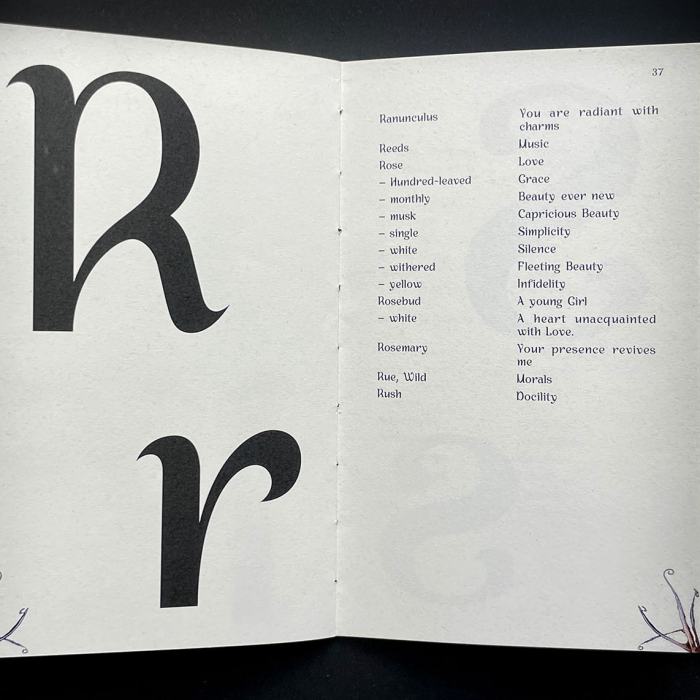 R
r
37
Ranunculus You are radiant with
charms
Reeds Music
Rose Love
– Hundred-leaved Grace
– monthly Beauty ever new
– musk Capricious Beauty
– single Simplicity
– white Silence
– withered Fleeting Beauty
– yellow Infidelity
Rosebud A young Girl
– white A heart unacquainted
with Love.
Rosemary Your presence revives
me
Rue, Wild Morals
Rush Docility